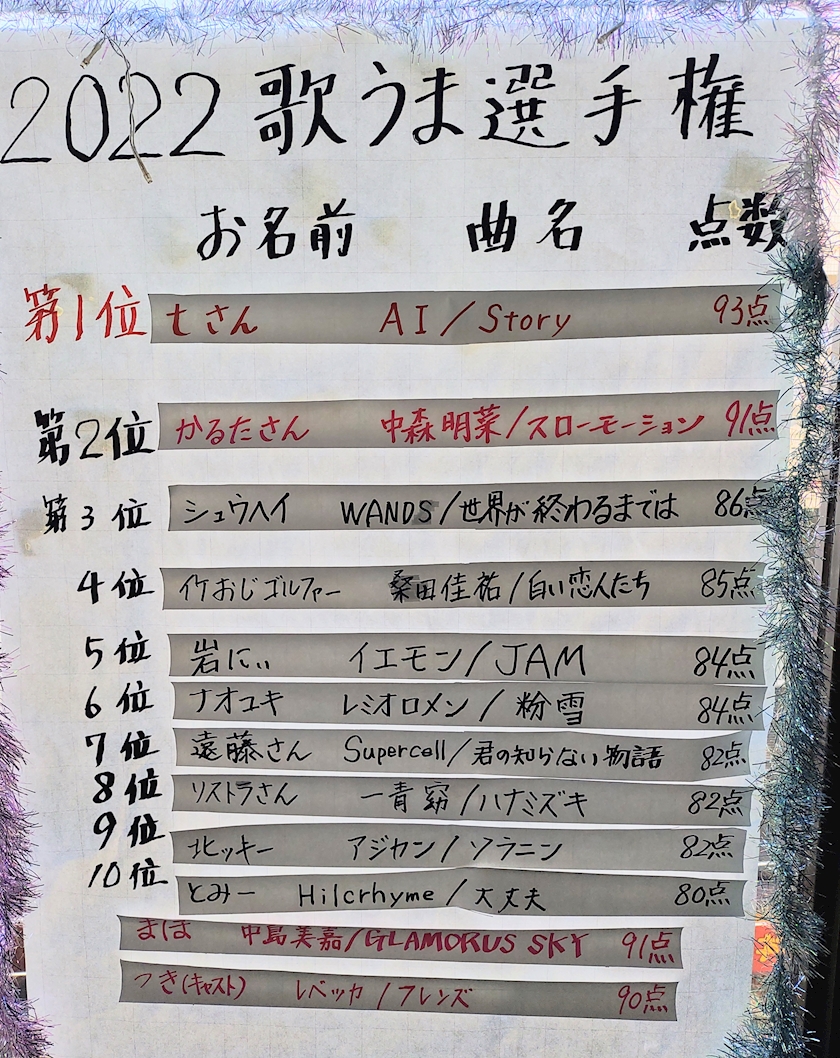 2022 歌うま選手権
お名前 曲名 点数
第1位 tさん AI/Story 93点
第2位 かるたさん 中森明菜/スローモーション 91点
第3位 シュウヘイ WANDS/世界が終わるまでは 86点
4位 イケおじゴルファー 桑田佳祐/白い恋人たち 85点
5位 岩にぃ イエモン/JAM 84点
6位 ナオユキ レミオロメン/粉雪 84点
7位 遠藤さん Supercell/君の知らない物語 82点
8位 リストラさん 一青窈/ハナミズキ 82点
9位 北ッキー アジカン/ソラニン 82点
10位 とみー Hilcrhyme/大丈夫 80点
まほ 中島美嘉/GLAMORUS SKY 91点
つき(キャスト) レベッカ/フレンズ 90点